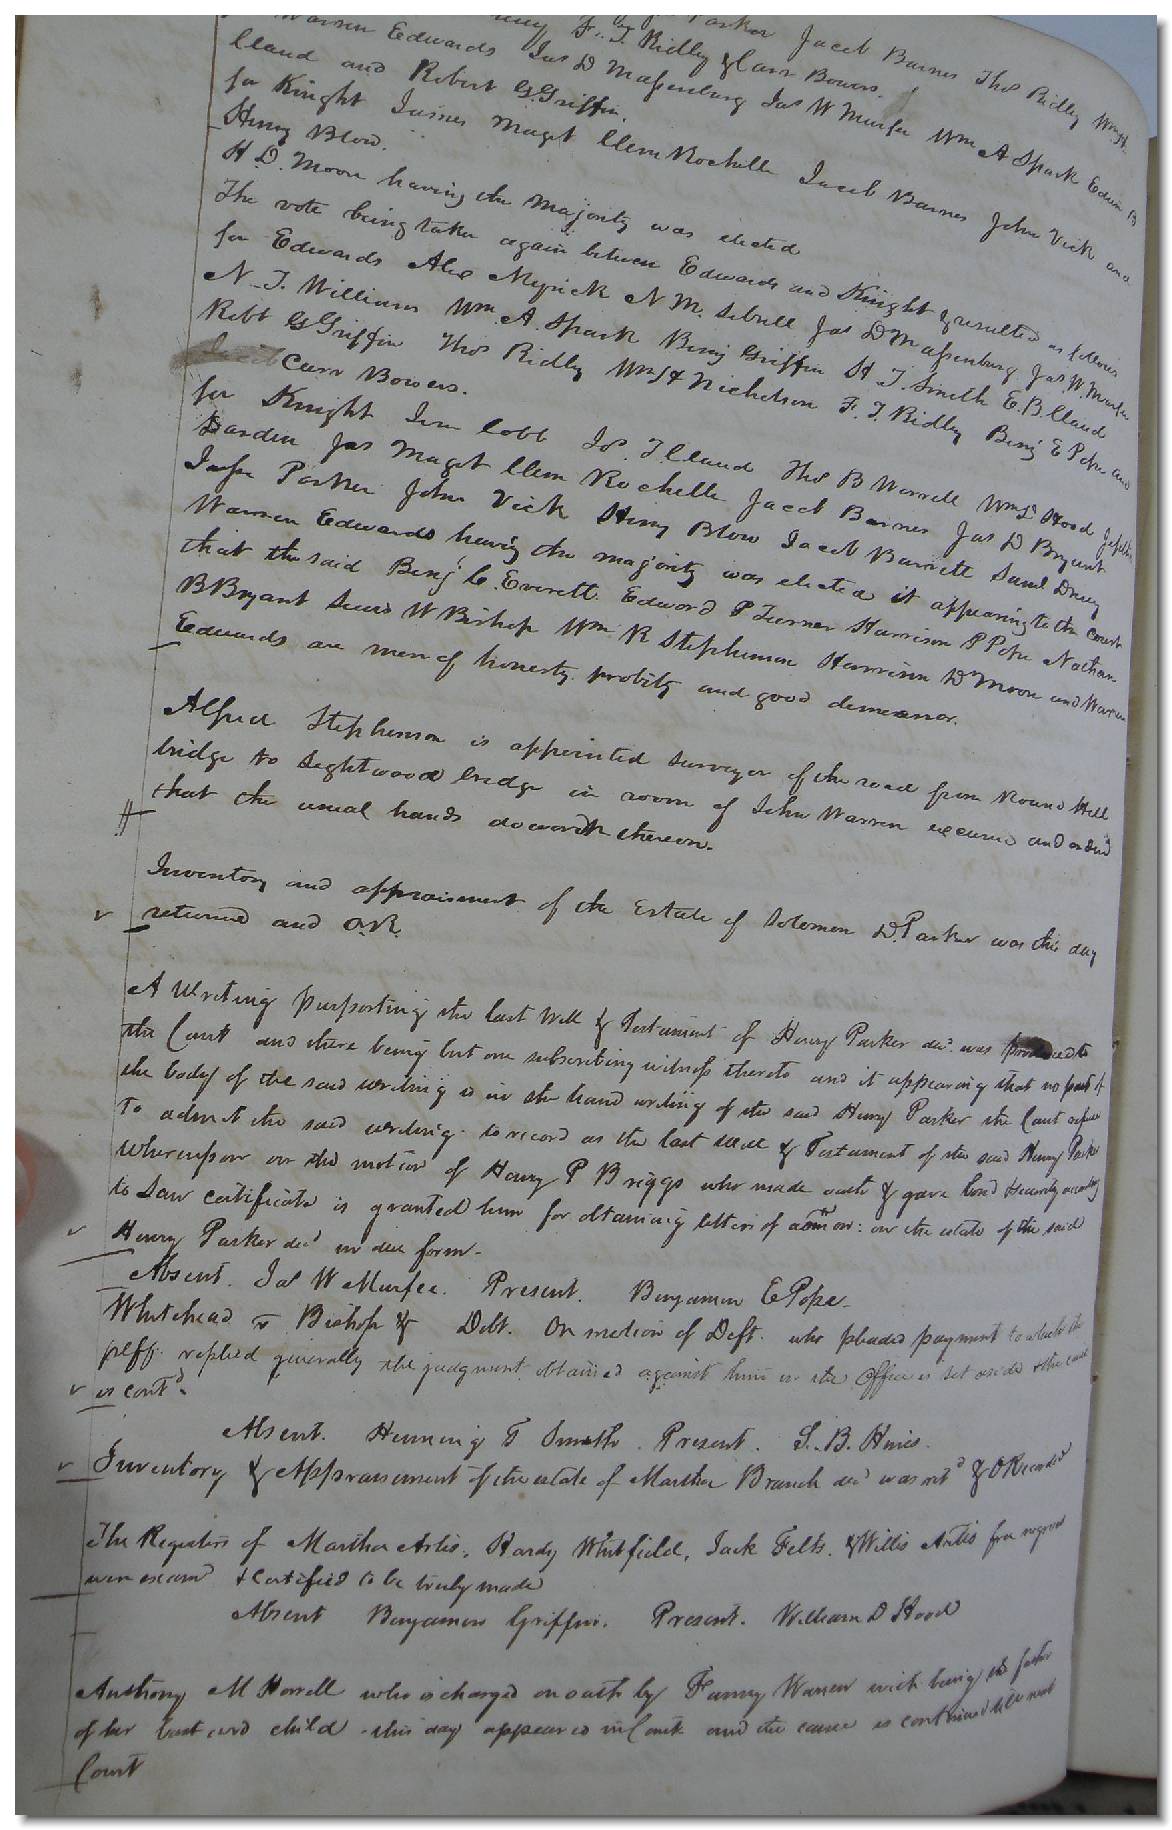 Parker Jacob Barnes Thos Ridley Wm H.
F. T. Ridley & Carr Bowers.
Warren Edwards Jas D Massenburg Jas W Murfee Wm A Spark Edwin B
Claud and Robert G Griffin.
for Knight James Maget Clem Rochelle Jacob Barnes John Vick and
Henry Blow.
H. D. Moore having the majority was elected
The vote being taken again between Edwards and Knight & resulted as follows
for Edwards Alex Myrick N M. Sebrell Jas D Massenburg Jas W. Murfee
N. T. Williams Wm. A. Spark Benj Griffin H T. Smith E. B. Claud
Robt G Griffin Thos Ridley Wm H Nicholson F. T. Ridley Benj E Pope and
Carr Bowers.
for Knight Jerm Cobb Jos. T Claud Thos B Worrell Wm D Hood Jeptha
Darden Jas Maget Clem Rochelle Jacob Barnes Jas D Bryant
Jesse Parker John Vick Henry Blow Jacob Barrett Saml Drury
Warren Edwards having the majority was elected it appearing to the court
that the said Benj C. Everett. Edward P Turner Harrison P Pope Nathan
B Bryant Lewis W Bishop Wm R Stephenson Harrison D Moore and Warren
Edwards are men of honesty probity and good demeanor.
Alfred Stephenson is appointed surveyor of the road from Round Hill
bridge to Lightwood bridge in room of John Warren excused and ordd
that the usual hands do work thereon.
Inventory and appraisement of the Estate of Solomon D. Parker was this day
returned and O.R.
A Writing purporting the last Will & Testament of Henry Parker decd. was produced to
the Court and there being but one subscribing witness thereto and it appearing that no part of
the body of the said writing is in the hand writing of the said Henry Parker the Court refuse
To admit the said writing to record as the last Will & Testament of the said Henry Parker
whereupon on the motion of Henry P Briggs who made oath & gave bond & security according
to Law certificate is granted him for obtaining letters of admon: on the estate of the said
Henry Parker decd in due form.
Absent. Jas W Murfee. Present. Benjamin E Pope.
Whitehead v Bishop & Debt. On motion of Deft. who pleaded payment to which the
plff. replied generally the judgment obtained against him in the Office is set aside & the cause
is contd.
Absent. Henning T Smith. Present. L. B. Hines.
Inventory & Appraisement of the estate of Martha Branch decd was retd & O Recorded
The Registers of Martha Artis, Hardy Whitfield, Jack Felts. & Willis Artis free negroes
were examd & Certified to be truly made
Absent Benjamin Griffin. Present. William D Hood
Anthony M Howell who is charged on oath by Fanny Warren with being the father
of her bastard child this day appeared in Court and the cause is continued till next
Court